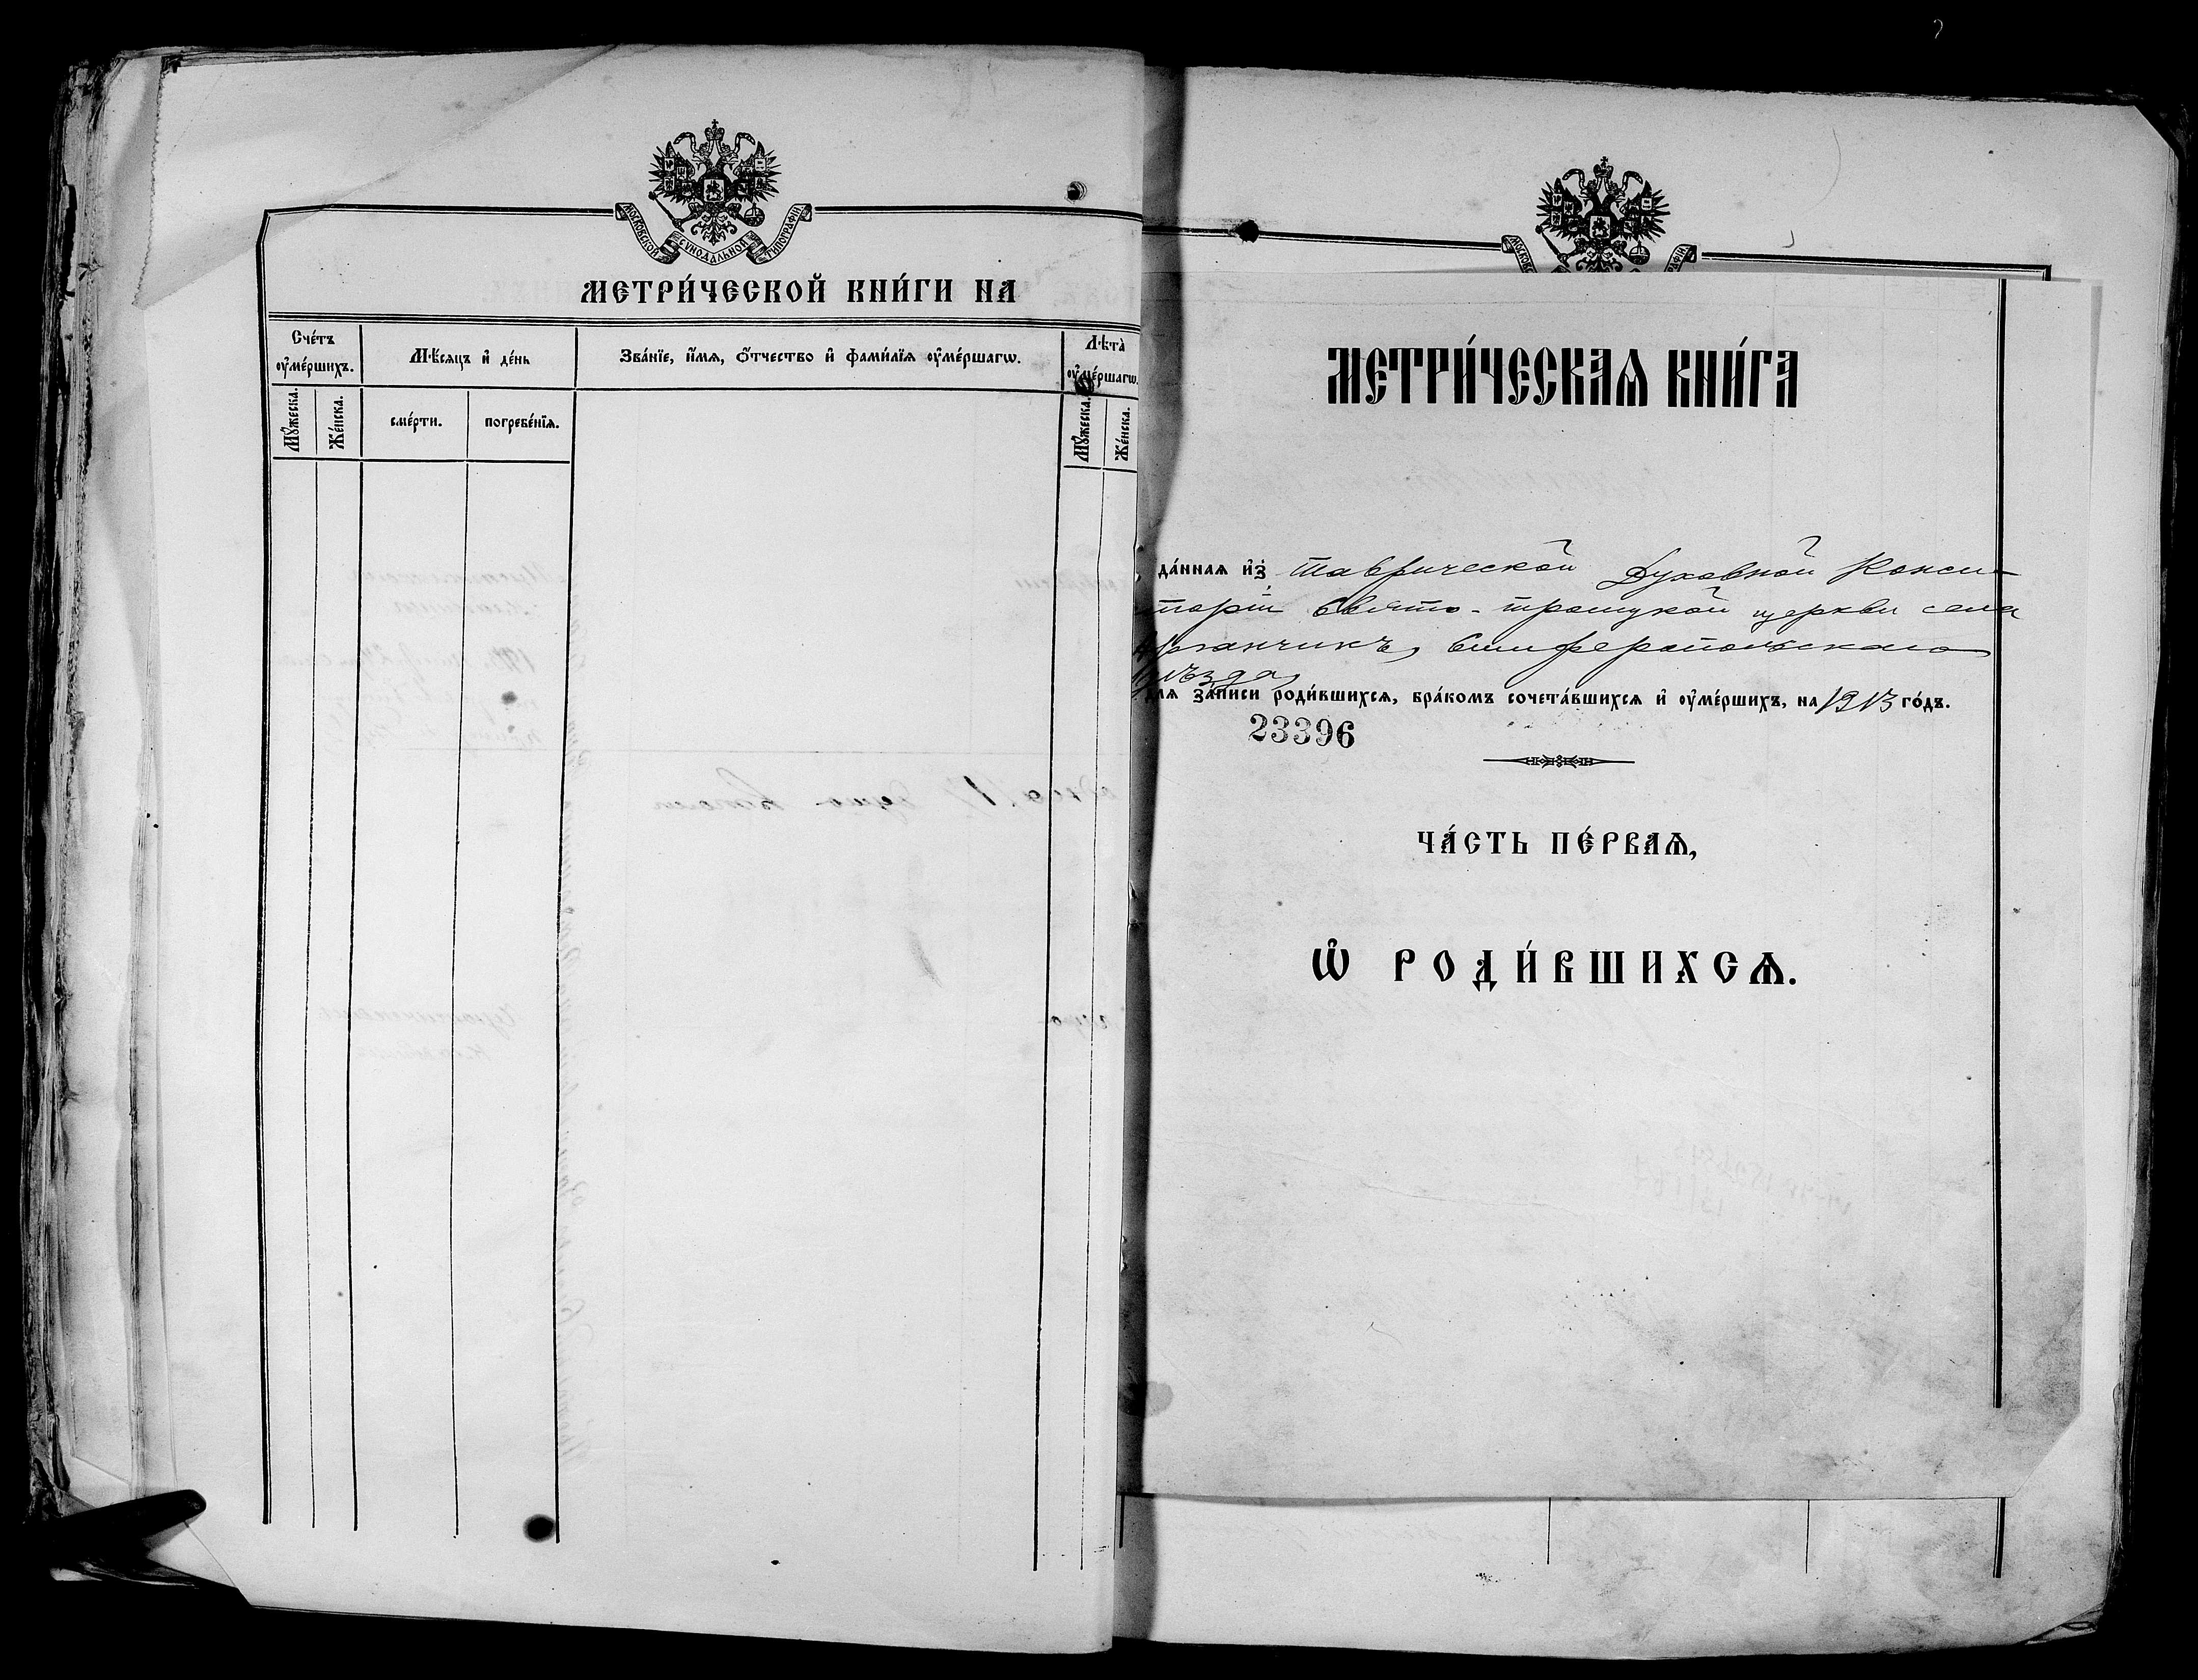 МОСКОВСКОЙ СѴНОДАЛЬНОЙ ТИПОГРАФІИ
МЕТРИ́ЧЕСКОЙ КНИ́ГИ НА
Сче́тъ ᲂу҆ме́ршихъ.
Мѣ́сѧцъ и҆ де́нь
Зва́нїе, и҆́мѧ, ѻ҆́тчество и҆ фами́лїѧ ᲂу҆ме́ршагѡ.
Лѣ́та ᲂу҆ме́ршагѡ.
Мꙋ́жеска.
Же́нска.
сме́рти.
погребе́нїѧ.
Мꙋ́жеска.
Же́нска.
МЕТРИ́ЧЕСКАѦ КНИ́ГА
да́ннаѧ и҆з̾ Таврической Духовной Конси-
торіи Свято-Троицкой церкви села
Аргинчикъ, Симферопольскаго
уѣзда,
для за́писи роди́вшихсѧ, бра́комъ сочета́вшихсѧ и҆ ᲂу҆ме́ршихъ, на 1913 го́дъ.
23396
ЧА́СТЬ ПЕ́РВАѦ,
Ѡ҆ РОДИ́ВШИХСѦ.